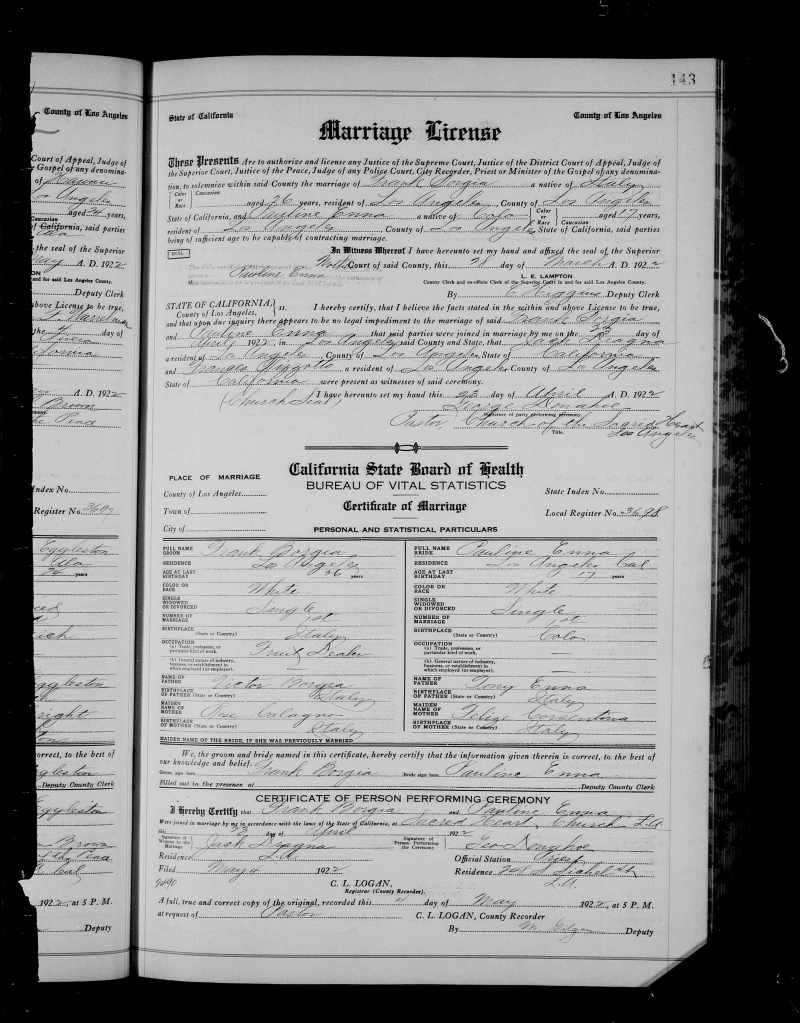 143
County of Los Angeles
State of California
County of Los Angeles
Marriage License
Court of Appeal, Judge of
These Presents Are to authorize and license any Justice of the Supreme Court, Justice of the District Court of Appeal, Judge of
the Gospel of any denomina-
the Superior Court, Justice of the Peace, Judge of any Police Court, City Recorder, Priest or Minister of the Gospel of any denomina-
of Hawaii
tion, to solemnize within said County the marriage of Frank Borgia a native of Italy
Los Angeles
Color or Race Caucasion aged 26 years, resident of Los Angeles, County of Los Angeles
aged 24 years,
State of California, and Pauline Enna a native of Colo Color or Race Caucasion aged 17 years,
of California, said parties
resident of Los Angeles, County of Los Angeles State of California, said parties
being of sufficient age to be capable of contracting marriage.
the seal of the Superior
SEAL
In Witness Whereof I have hereunto set my hand and affixed the seal of the Superior
May A. D. 1922
Pauline Enna Mother Court of said County, this 28 day of March A. D. 1922
L. E. LAMPTON
County Clerk and ex-officio Clerk of the Superior Court in and for said Los Angeles County.
and for said Los Angeles County.
Deputy Clerk
By E Higgins Deputy Clerk
above License to be true,
STATE OF CALIFORNIA, County of Los Angeles, ss. I hereby certify, that I believe the facts stated in the within and above License to be true,
and that upon due inquiry there appears to be no legal impediment to the marriage of said Frank Borgia
the day of
and Pauline Enna that said parties were joined in marriage by me on the 23 day of
April 1922 in Los Angeles, said County and State, that Jack Dragna
California
a resident of Los Angeles, County of Los Angeles, State of California
and Frances a resident of Los Angeles County of Los Angeles
State of California were present as witnesses of said ceremony.
A. D. 1922
(Church Seal) I have hereunto set my hand this 23 day of April A. D. 1922
Brown
George Donahoe
the Peace
Signature of party performing ceremony.
Pastor, Church of the Sacred Heart
Title.
Los Angeles
California State Board of Health
BUREAU OF VITAL STATISTICS
Certificate of Marriage
PLACE OF MARRIAGE
County of Los Angeles
Town of
City of
Index No.
State Index No.
Register No. 3607
Local Register No. 3698
PERSONAL AND STATISTICAL PARTICULARS
Eggleston
FULL NAME GROOM Frank Borgia
FULL NAME BRIDE Pauline Enna
RESIDENCE Los Angeles
RESIDENCE Los Angeles Cal
24 years
AGE AT LAST BIRTHDAY 26 years
AGE AT LAST BIRTHDAY 17 years
COLOR OR RACE White
COLOR OR RACE White
SINGLE WIDOWED OR DIVORCED Single
SINGLE WIDOWED OR DIVORCED Single
NUMBER OF MARRIAGE 1st
NUMBER OF MARRIAGE 1st
BIRTHPLACE (State or Country) Italy
BIRTHPLACE (State or Country) Colo
OCCUPATION
(a) Trade, profession, or particular kind of work. Fruit Dealer
OCCUPATION
(a) Trade, profession, or particular kind of work.
(b) General nature of industry, business, or establishment in which employed (or employer).
(b) General nature of industry, business, or establishment in which employed (or employer).
Eggleston
NAME OF FATHER Victor Borgia
NAME OF FATHER Tony Enna
BIRTHPLACE OF FATHER (State or Country) Italy
BIRTHPLACE OF FATHER (State or Country) Italy
MAIDEN NAME OF MOTHER Rose
MAIDEN NAME OF MOTHER
BIRTHPLACE OF MOTHER (State or Country) Italy
BIRTHPLACE OF MOTHER (State or Country) Italy
MAIDEN NAME OF THE BRIDE, IF SHE WAS PREVIOUSLY MARRIED
correct, to the best of
We, the groom and bride named in this certificate, hereby certify that the information given therein is correct, to the best of
our knowledge and belief.
Eggleston
Groom, sign here. Frank Borgia Bride sign here. Pauline Enna
Deputy County Clerk
Filled out in the presence of Deputy County Clerk
CERTIFICATE OF PERSON PERFORMING CEREMONY
Eggleston
I Hereby Certify that Frank Borgia and Pauline Enna
Were joined in marriage by me in accordance with the laws of the State of California, at Sacred Heart Church L.A.
this 23 day of April 1922
Brown
Signature of Witness to the Marriage Jack Dragna
Signature of Person Performing the Ceremony Geo Donahoe
of the Peace
Residence L.A.
Official Station Priest
Filed May 4 1922
Residence
L.A.
C. L. LOGAN,
Registrar (County Recorder).
1922, at 5 P. M.
A full, true and correct copy of the original, recorded this 4 day of May 1922, at 5 P. M.
at request of Pastor C. L. LOGAN, County Recorder
Deputy
By M. Deputy